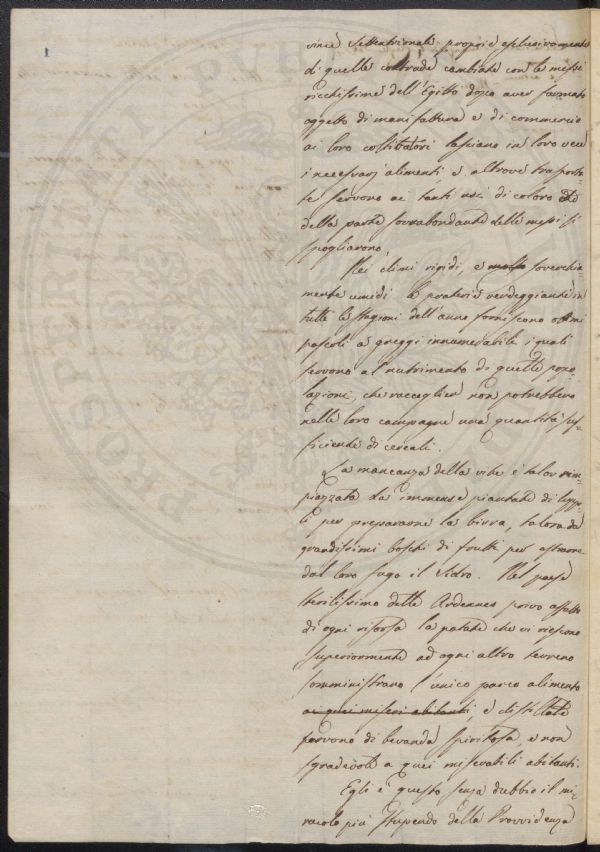 vincie settentrionali proprie esclusivamente
di quelle contrade cambiate con le messi
ricchissime dell'Egitto dopo aver formato
oggetto di manifattura e di commercio
ai loro coltivatori lasciano in loro vece
i necessarj alimenti e altrove trasporta-
te servono ai tanti usi di coloro che
della parte sovrabbondante delle messi si
spogliarono.
Nei climi rigidi, e molto soverchia
mente umidi le praterie verdeggianti in
tutte le stagioni dell'anno forniscono ottimi
pascoli a greggi innumerabili i quali
servono al nutrimento di quelle popo
lazioni, che raccoglier non potrebbero
nelle loro campagne una quantità suf-
ficiente di cereali.
La mancanza della vite è talor rim-
piazzata da immense piantate di luppo-
li per prepararne la birra, talora da
grandissimi boschi di frutti per estrarre
dal loro sugo il Sidro. Nel paese
sterilissimo delle Ardennes privo affatto
di ogni risorsa le patate che vi riescono
superiormente ad ogni altro terreno
somministrano l'unico parco alimento
ai quei miseri abitanti, e distillate
servono di bevanda spiritosa, e non
sgradevole a quei miserabili abitanti.
Egli è questo senza dubbio il mi-
racolo più stupendo della Provvidenza
PROSPERITATI PUBL